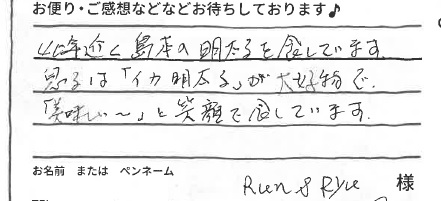 お便り・ご感想などなどお待ちしております♪
40年近く島本の明太子を食しています。
息子は「イカ明太子」が大好物で、
「美味しい〜」と笑顔で食しています。
お名前 または ペンネーム
Run & Ryu 様